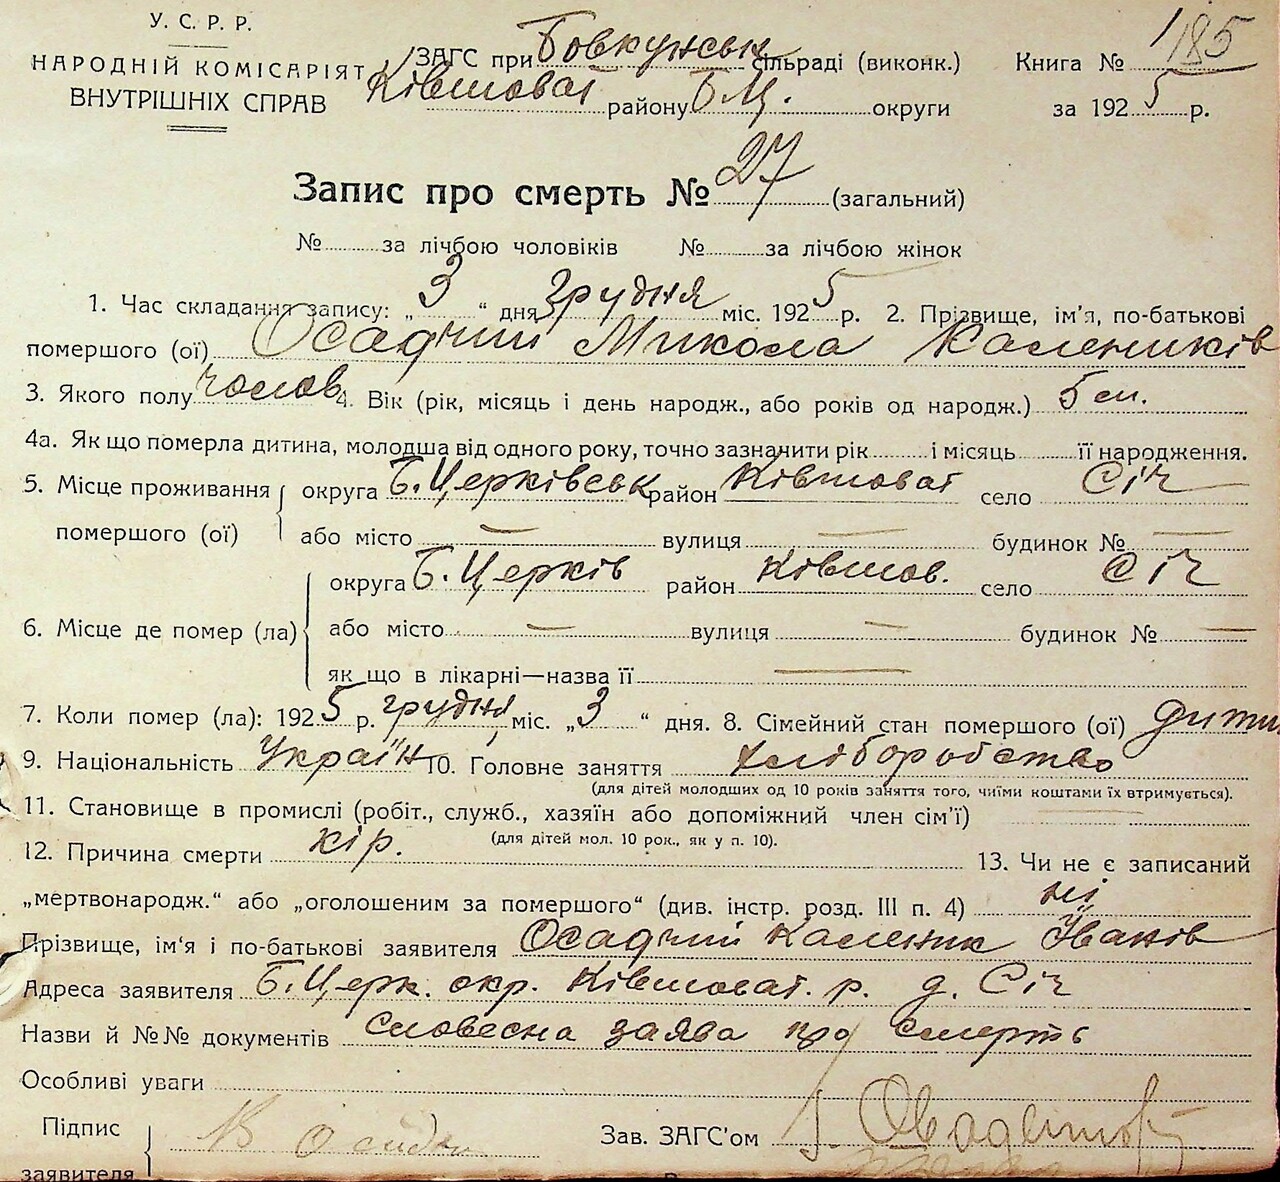 У. С. Р. Р.
НАРОДНІЙ КОМІСАРІЯТ
ВНУТРІШНІХ СПРАВ
ЗАГС при Бовкунськ сільраді (виконк.)
Ківшоват району Б.Ц. округи
Книга № 1/85
за 1925 р.
Запис про смерть № 27 (загальний)
№ за лічбою чоловіків № за лічбою жінок
1. Час складання запису: „3“ дня грудня міс. 1925 р. 2. Прізвище, ім'я, по-батькові
помершого (ої) Осадчий Микола Калеників
3. Якого полу чолов. 4. Вік (рік, місяць і день народж., або років од народж.) 5 м.
4а. Як що померла дитина, молодша від одного року, точно зазначити рік і місяць її народження.
5. Місце проживання помершого (ої) округа Б.Церківськ район Ківшоват село Січ
або місто — вулиця — будинок № —
6. Місце де помер (ла) округа Б.Церків район Ківшов. село Січ
або місто — вулиця — будинок № —
як що в лікарні—назва її —
7. Коли помер (ла): 1925 р. грудня міс. „3“ дня. 8. Сімейний стан помершого (ої) дити
9. Національність Україн 10. Головне заняття хліборобство
(для дітей молодших од 10 років заняття того, чиїми коштами їх втримується).
11. Становище в промислі (робіт., служб., хазяїн або допоміжний член сім'ї)
(для дітей мол. 10 рок., як у п. 10).
12. Причина смерти кір. 13. Чи не є записаний
„мертвонародж.“ або „оголошеним за помершого“ (див. інстр. розд. III п. 4) ні
Прізвище, ім'я і по-батькові заявителя Осадчий Каленик Іванів
Адреса заявителя Б.Церк. окр. Ківшоват. р. д. Січ
Назви й №№ документів словесна заява про смерть
Особливі уваги
Підпис
заявителя
К Осадч
Зав. ЗАГС'ом